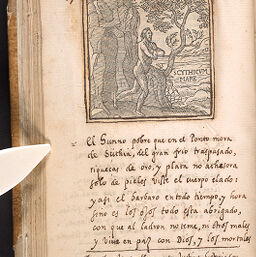 SCYTHICUM
MARE
El Hunno pobre que en el Ponto mora
de Scithia, del gran frio traspasado,
riquezas de oro, y plata no athesora
solo de pieles viste el cuerpo elado:
y asi el barbaro en todo tiempo, y hora
sino es los ojos todo esta abrigado,
con que al ladron no teme, ni otros males
y vive en paz con Dios, y los mortales